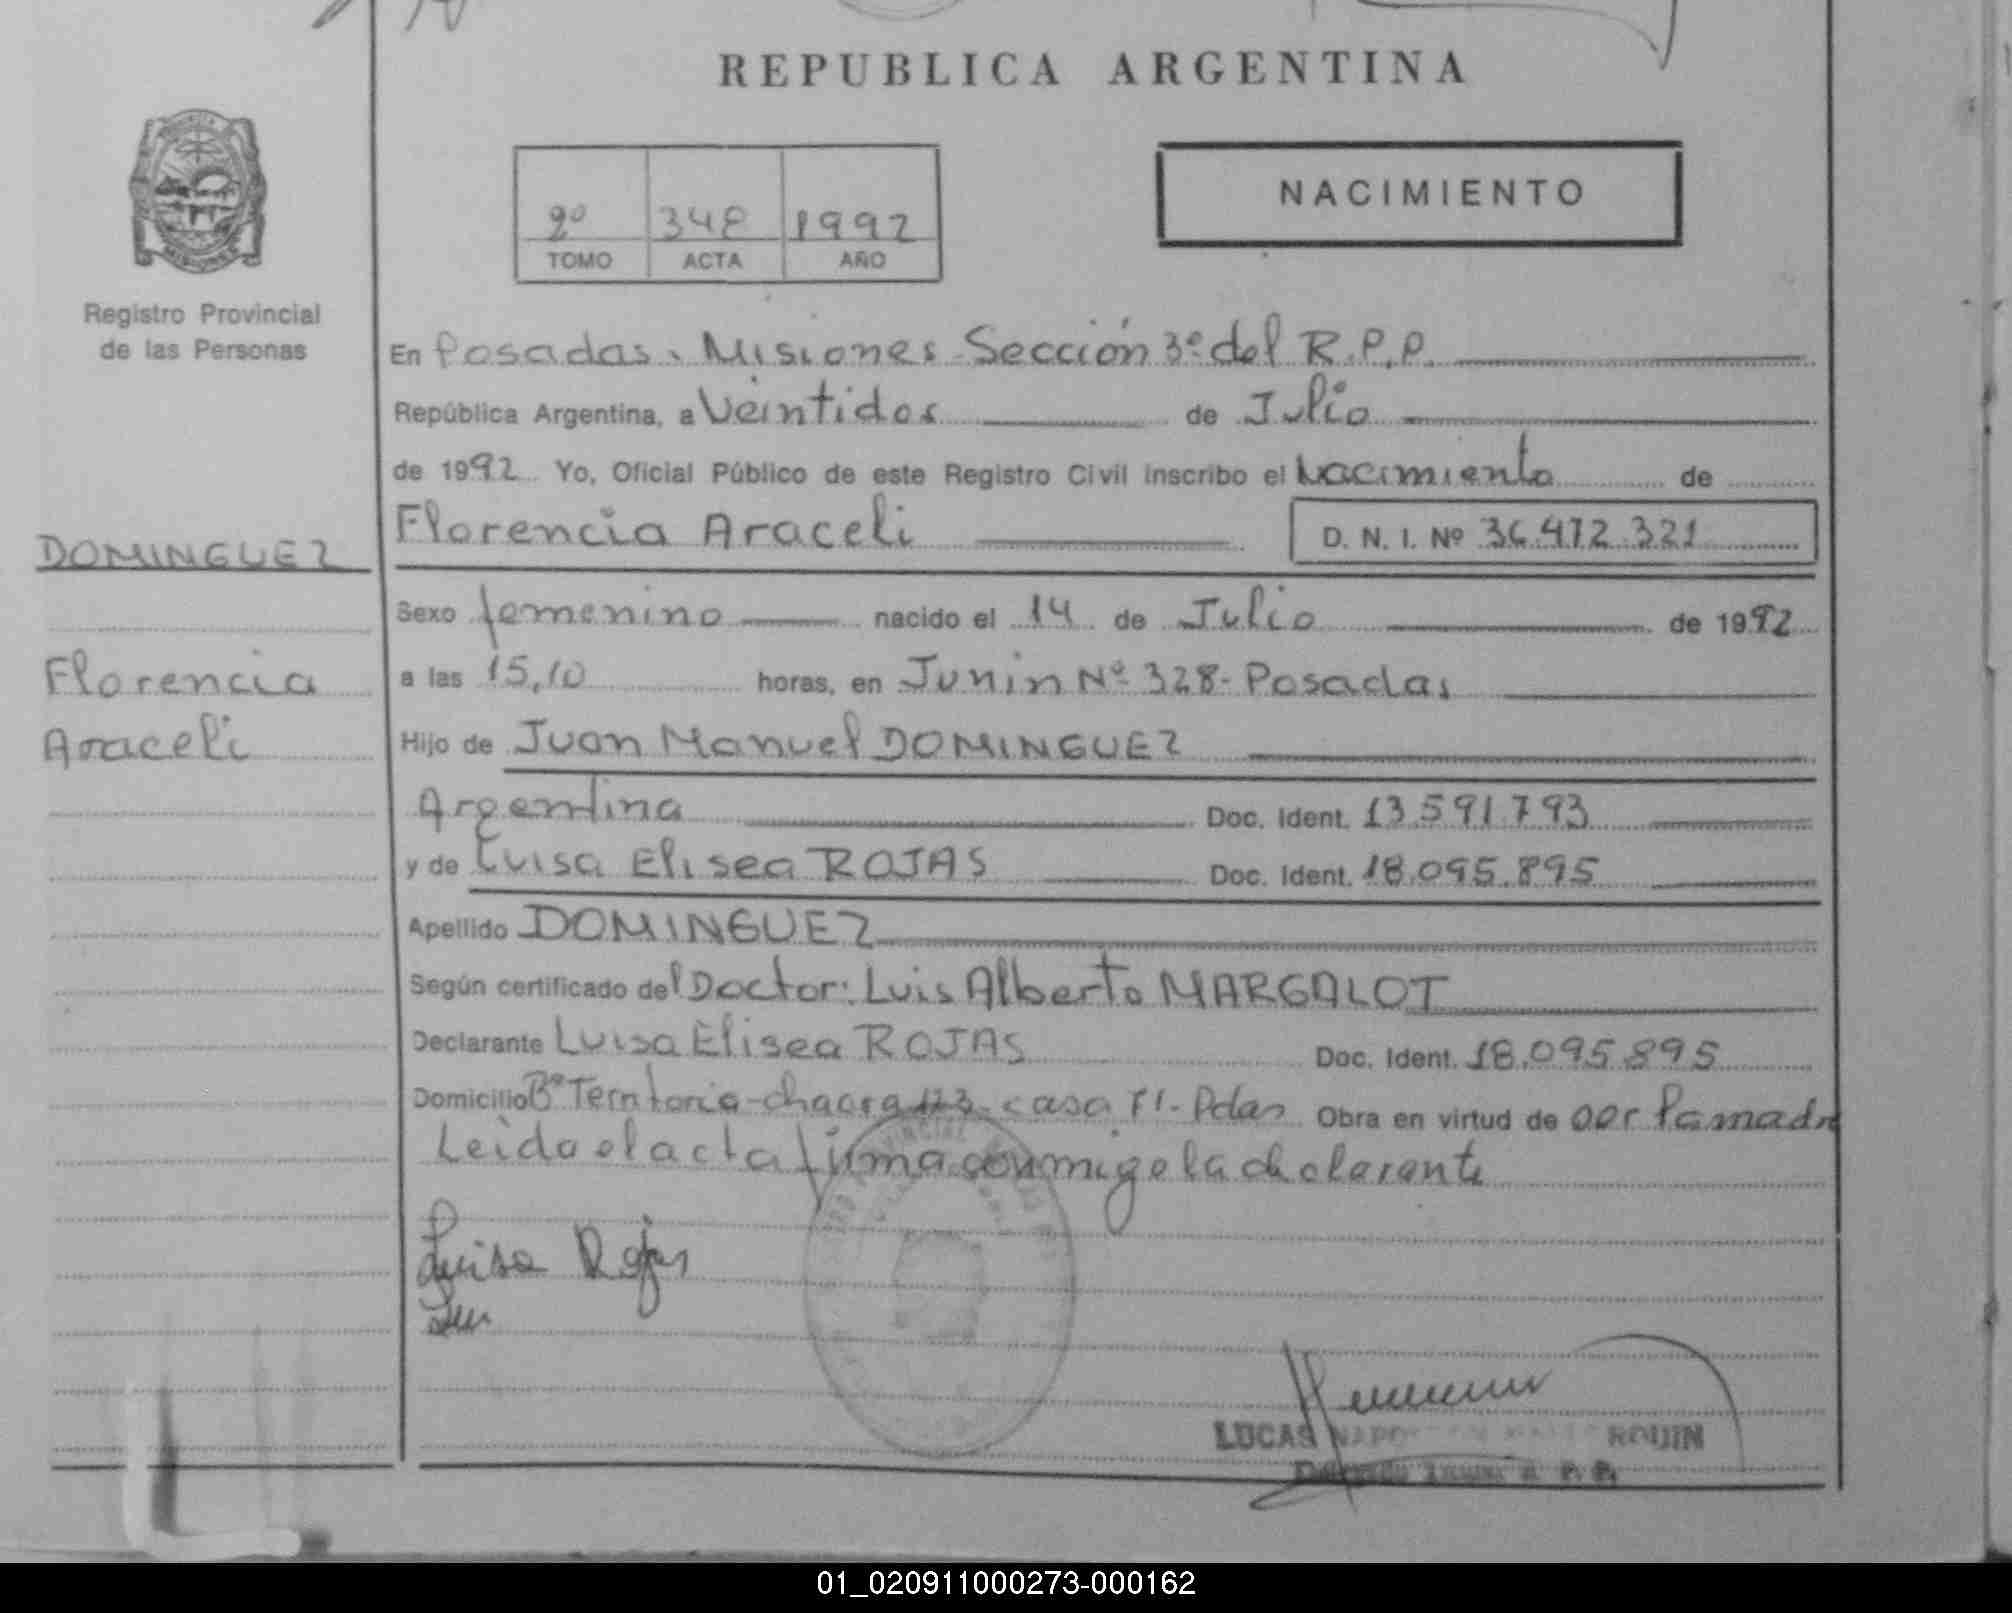 REPUBLICA ARGENTINA
NACIMIENTO
2º 348 1992
TOMO ACTA AÑO
Registro Provincial
de las Personas
En Posadas, Misiones - Sección 3º del R.P.P.
República Argentina, a Veintidos de Julio
de 1992 Yo, Oficial Público de este Registro Civil inscribo el Nacimiento de
Florencia Araceli D. N. I. Nº 36.472.321
DOMINGUEZ
Florencia
Araceli
Sexo femenino nacido el 14 de Julio de 1992
a las 15,10 horas, en Junin Nº 328 - Posadas
Hijo de Juan Manuel DOMINGUEZ
Argentina Doc. Ident. 13.591.793
y de Luisa Elisea ROJAS Doc. Ident. 18.095.895
Apellido DOMINGUEZ
Según certificado del Doctor: Luis Alberto MARGALOT
Declarante Luisa Elisea ROJAS Doc. Ident. 18.095.895
Domicilio Bº chacra 123 - casa 71 - Pdas Obra en virtud de ser la madre
Leida el acta firma conmigo la declarante
Luisa Rojas
LUCAS
01_020911000273-000162